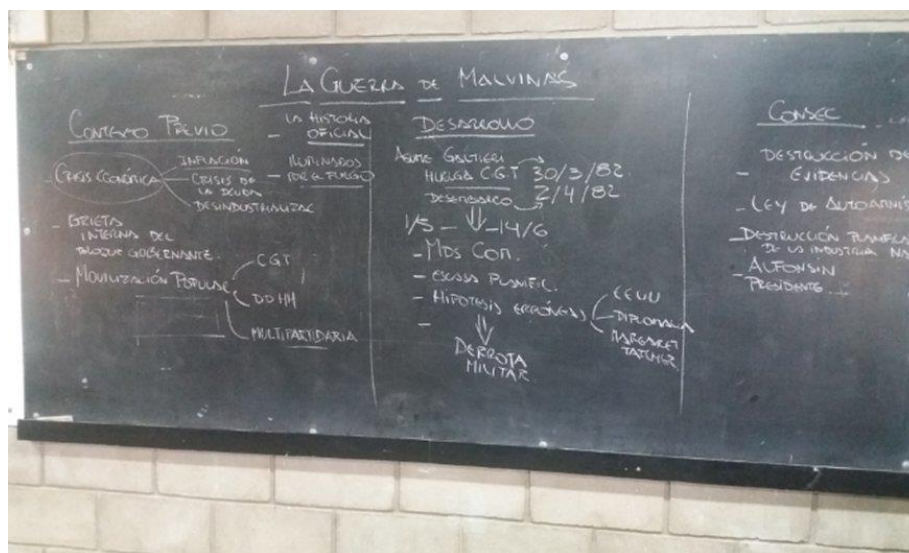 LA GUERRA DE MALVINAS
CONTEXTO PREVIO
CRISIS ECONÓMICA
INFLACIÓN
CRISIS DE
LA DEUDA
DESINDUSTRIALIZAC
- GRIETA
INTERNA DEL
BLOQUE GOBERNANTE.
- MOVILIZACIÓN POPULAR
CGT
DDHH
MULTIPARTIDARIA
- LA HISTORIA
OFICIAL
- ILUMINADOS
POR EL FUEGO
DESARROLLO
ASUME GALTIERI
HUELGA C.G.T 30/3/82
DESEMBARCO 2/4/82
1/5 - - 14/6
- MDS COM.
- ESCASA PLANIFIC.
- HIPOTESIS ERRÓNEAS
EEUU
DIPLOMACIA
MARGARET
TATCHER
-
DERROTA
MILITAR.
CONSEC
- DESTRUCCIÓN DE
EVIDENCIAS
- LEY DE AUTOAMNIS
- DESTRUCCIÓN
DE LA INDUSTRIA NA
- ALFONSIN
PRESIDENTE